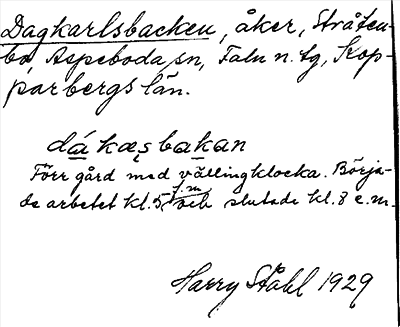 Dagkarlsbacken, åker, Stråten-
bo, Aspeboda sn, Falu n. tg, Kop-
parbergs län.
dákæsbakan
Förr gård med vällingklocka. Börja-
de arbetet kl. 5 f.m. och slutade kl. 8 e.m.
Harry Ståhl 1929